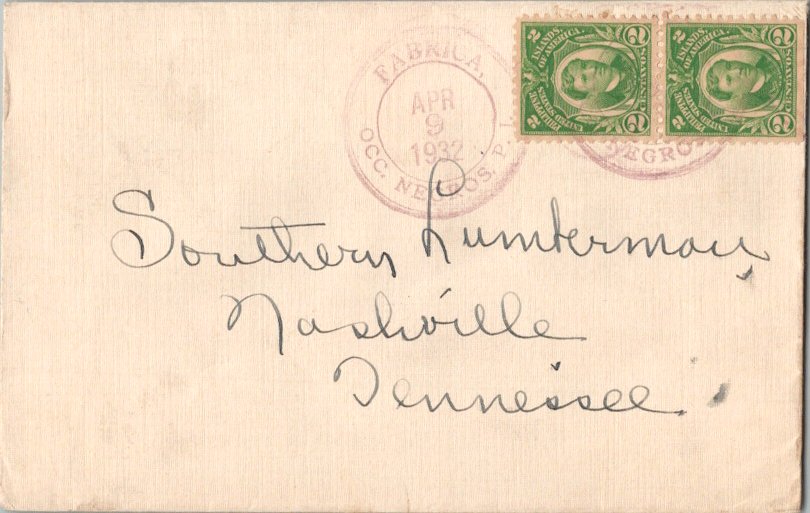 FABRICA,
APR
9
1932
OCC. NEGROS. P. I.
2 PHILIPPINE ISLANDS 2
UNITED STATES OF AMERICA
2 CENTAVOS 2
2 PHILIPPINE ISLANDS 2
UNITED STATES OF AMERICA
2 CENTAVOS 2
NEGRO
Southern Lumberman
Nashville
Tennessee.